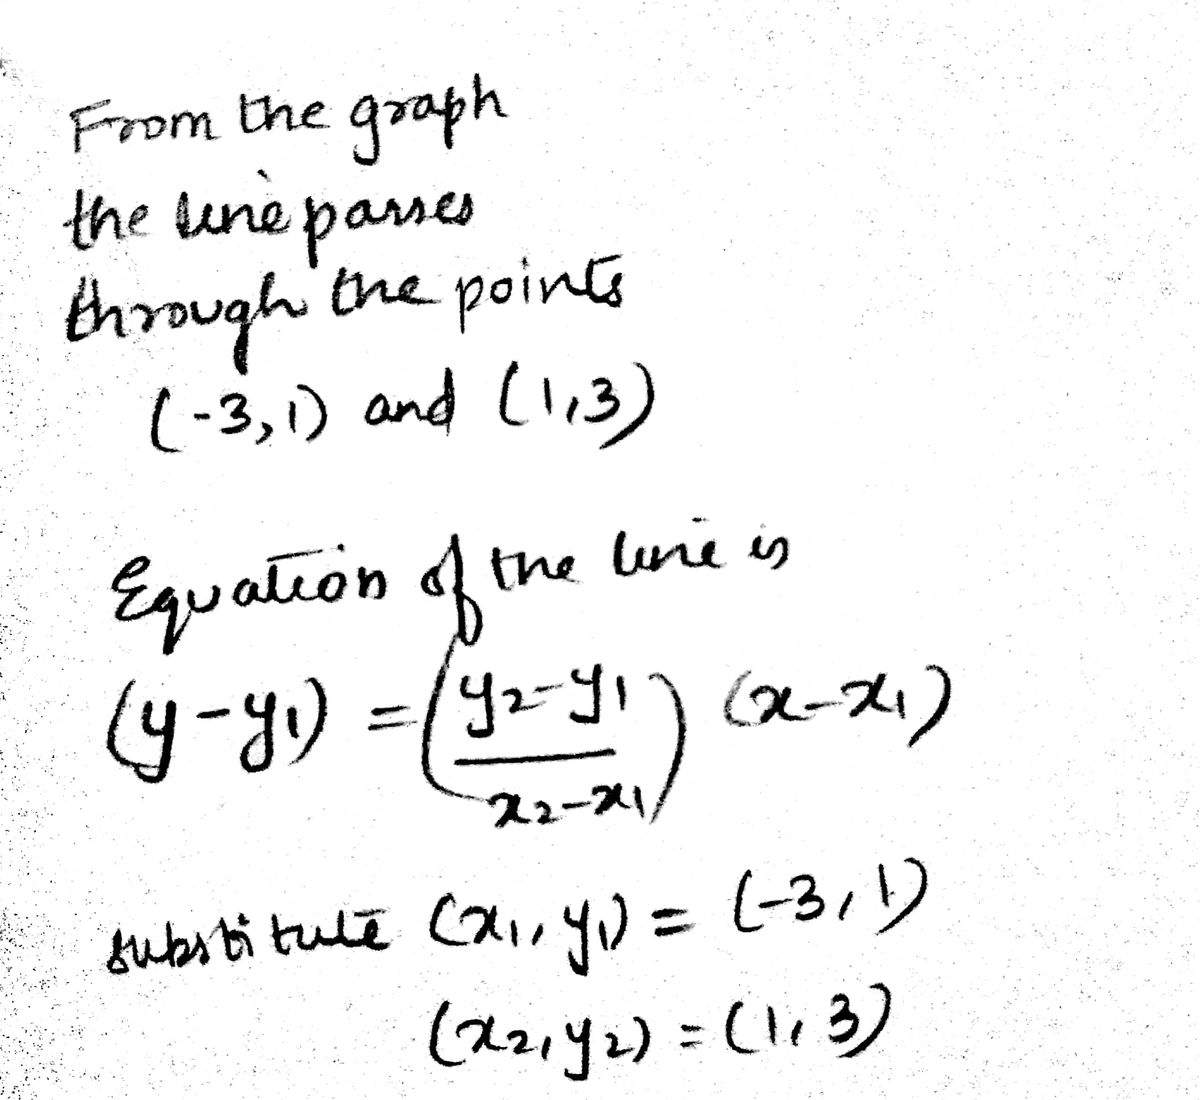 From the graph
the line passes
through the points
(-3,1) and (1,3)
Equation of the line is
(y-y₁) = (y₂-y₁ / x₂-x₁) (x-x₁)
substitute (x₁, y₁) = (-3, 1)
(x₂, y₂) = (1, 3)